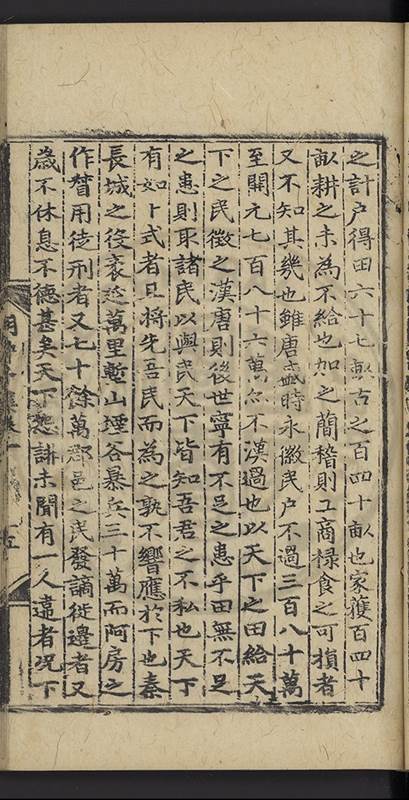 之計戶得田六十七畝古之百四十畝也家獲百四十
畝耕之未為不給也加之簡稽則工商祿食之可損者
又不知其幾也雖唐盛時永徽民戶不過三百八十萬
至開元七百八十六萬尔不漢過也以天下之田給天
下之民徵之漢唐則後世寧有不足之患乎田無不足
之患則取諸民以與民天下皆知吾君之不私也天下
有如卜式者且將先吾民而為之孰不響應於下也秦
長城之役袤延萬里塹山堙谷暴兵三十萬而阿房之
作瞽用徒刑者又七十餘萬郡邑之民發謫徙邊者又
歲不休息不德甚矣天下怨讟未聞有一人違者况下